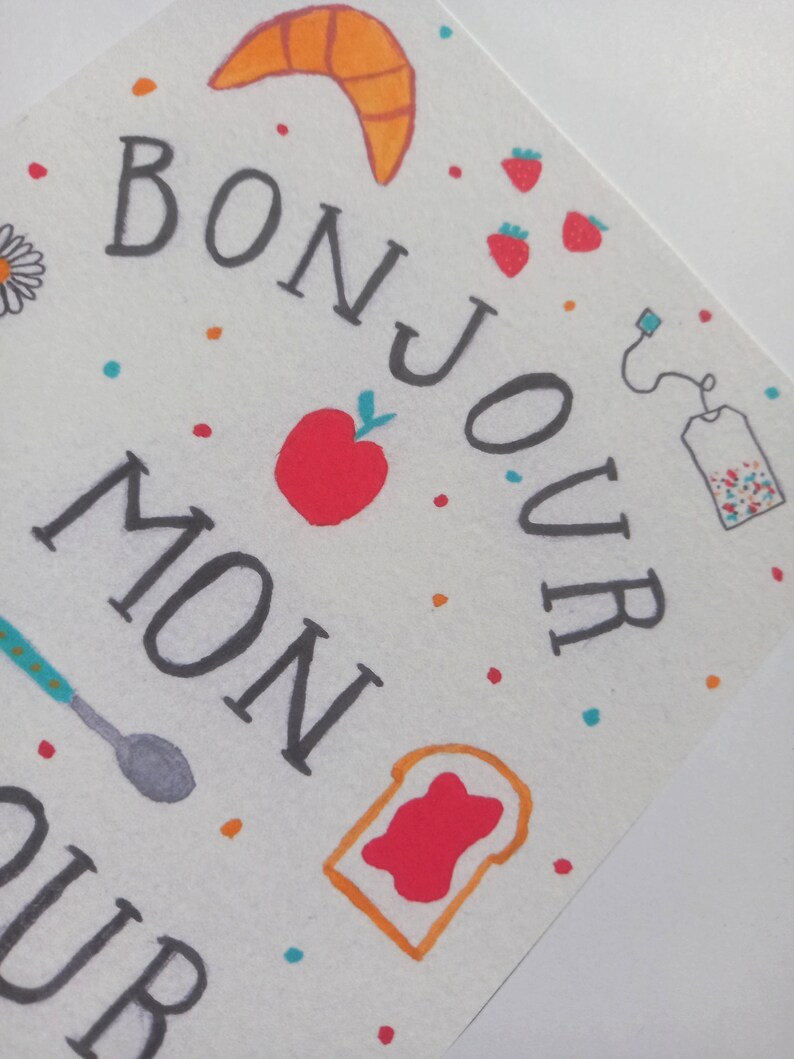 BONJOUR
MON
OUR